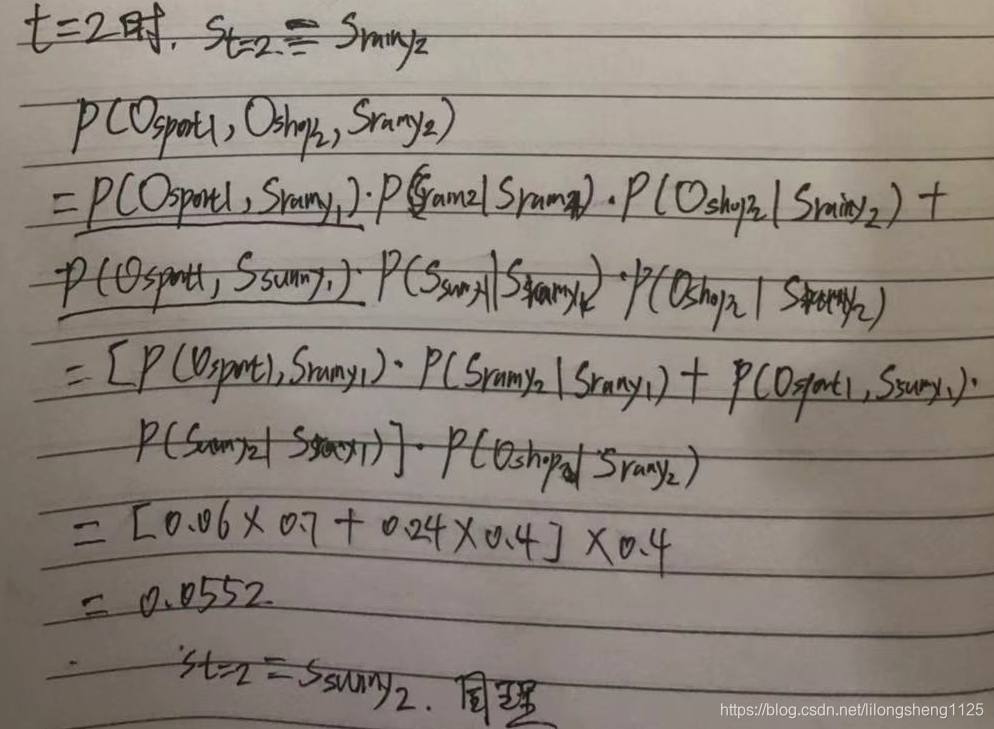 t=2时. St=2 = Srainy2
P(Osport1, Oshop2, Srainy2)
= P(Osport1, Srainy1)·P(Srain2|Srain2)·P(Oshop2|Srainy2) +
P(Osport1, Ssunny1)·P(Ssunny1|Srainy2)·P(Oshop2|Srainy2)
= [P(Osport1, Srainy1)·P(Srainy2|Srainy1) + P(Osport1, Ssunny1)·
P(Ssunny2| )]·P(Oshop2|Srainy2)
= [0.06×0.7 + 0.24×0.4] ×0.4
= 0.0552
St=2 = Ssunny2. 同理
https://blog.csdn.net/lilongsheng1125